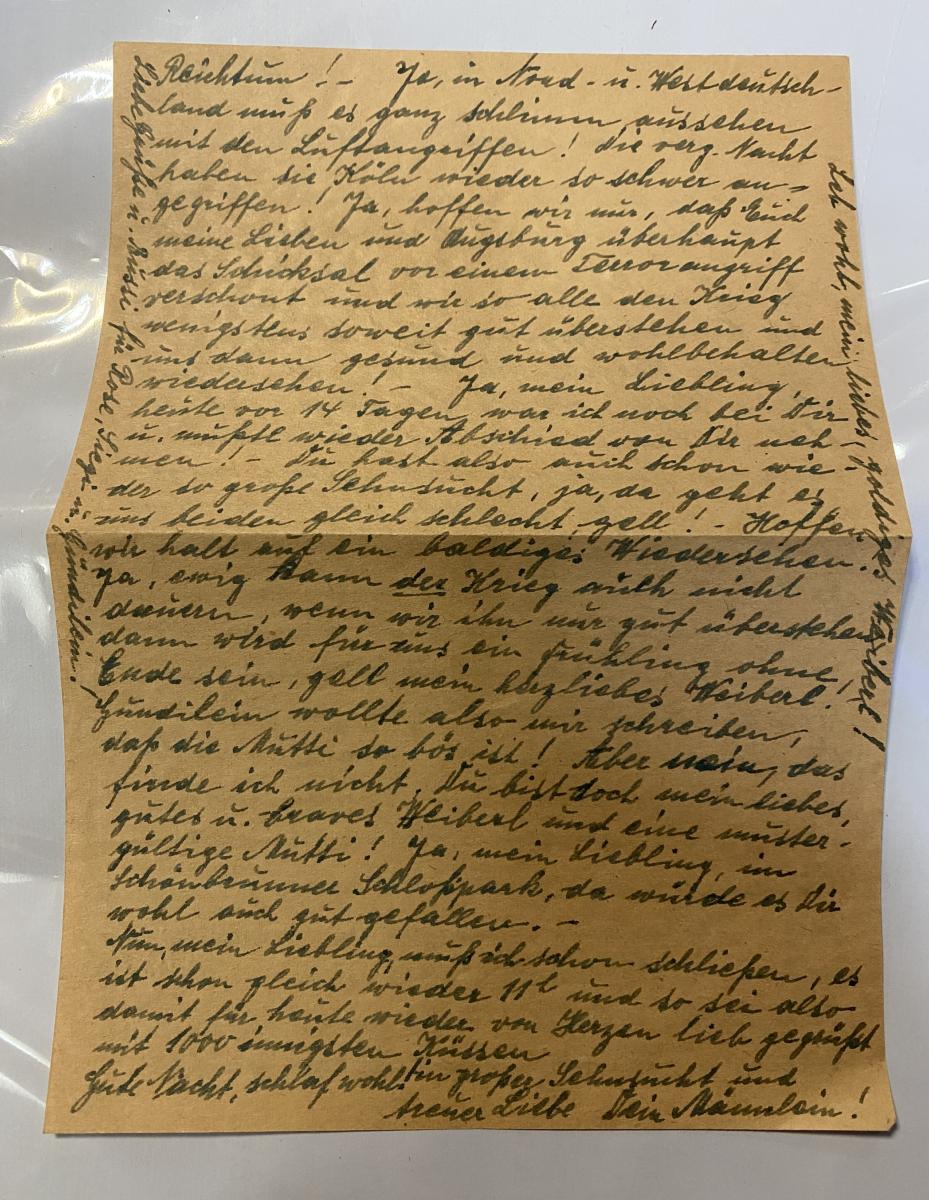 Reichtum! - Ja, in Nord- u. Westdeutsch-
land muß es ganz schlimm aussehen
mit den Luftangriffen! Die verg. Nacht
haben sie Köln wieder so schwer an-
gegriffen! Ja, hoffen wir nur, daß Euch
meine Lieben und Augsburg überhaupt
das Schicksal vor einem Terrorangriff
verschont und wir so alle den Krieg
wenigstens soweit gut überstehen und
uns dann gesund und wohlbehalten
wiedersehen! - Ja, mein Liebling,
heute vor 14 Tagen war ich noch bei Dir
u. mußte wieder Abschied von Dir neh-
men! - Du hast also auch schon wie-
der so große Sehnsucht, ja, da geht es
uns beiden gleich schlecht, gell! - Hoffen
wir halt auf ein baldiges Wiedersehen.
Ja, ewig kann der Krieg auch nicht
dauern, wenn wir ihn nur gut überstehen,
dann wird für uns ein Frühling ohne
Ende sein, gell mein herzliebes Weiberl!
Gundilein wollte also mir schreiben,
daß die Mutti so bös ist! Aber nein, das
finde ich nicht. Du bist doch mein liebes,
gutes u. braves Weiberl und eine muster-
gültige Mutti! Ja, mein Liebling, im
Schönbrunner Schloßpark, da würde es Dir
wohl auch gut gefallen. -
Nun, mein Liebling, muß ich schon schließen, es
ist schon gleich wieder 11h und so sei also
damit für heute wieder von Herzen lieb gegrüßt
mit 1000 innigsten Küssen
Gute Nacht, schlaf wohl! in großer Sehnsucht und
treuer Liebe Dein Männlein!
Liebe Grüße u. Bussi für Rose, Siegi u. Gundilein!
Leb wohl, mein liebes, goldiges Weiberl!